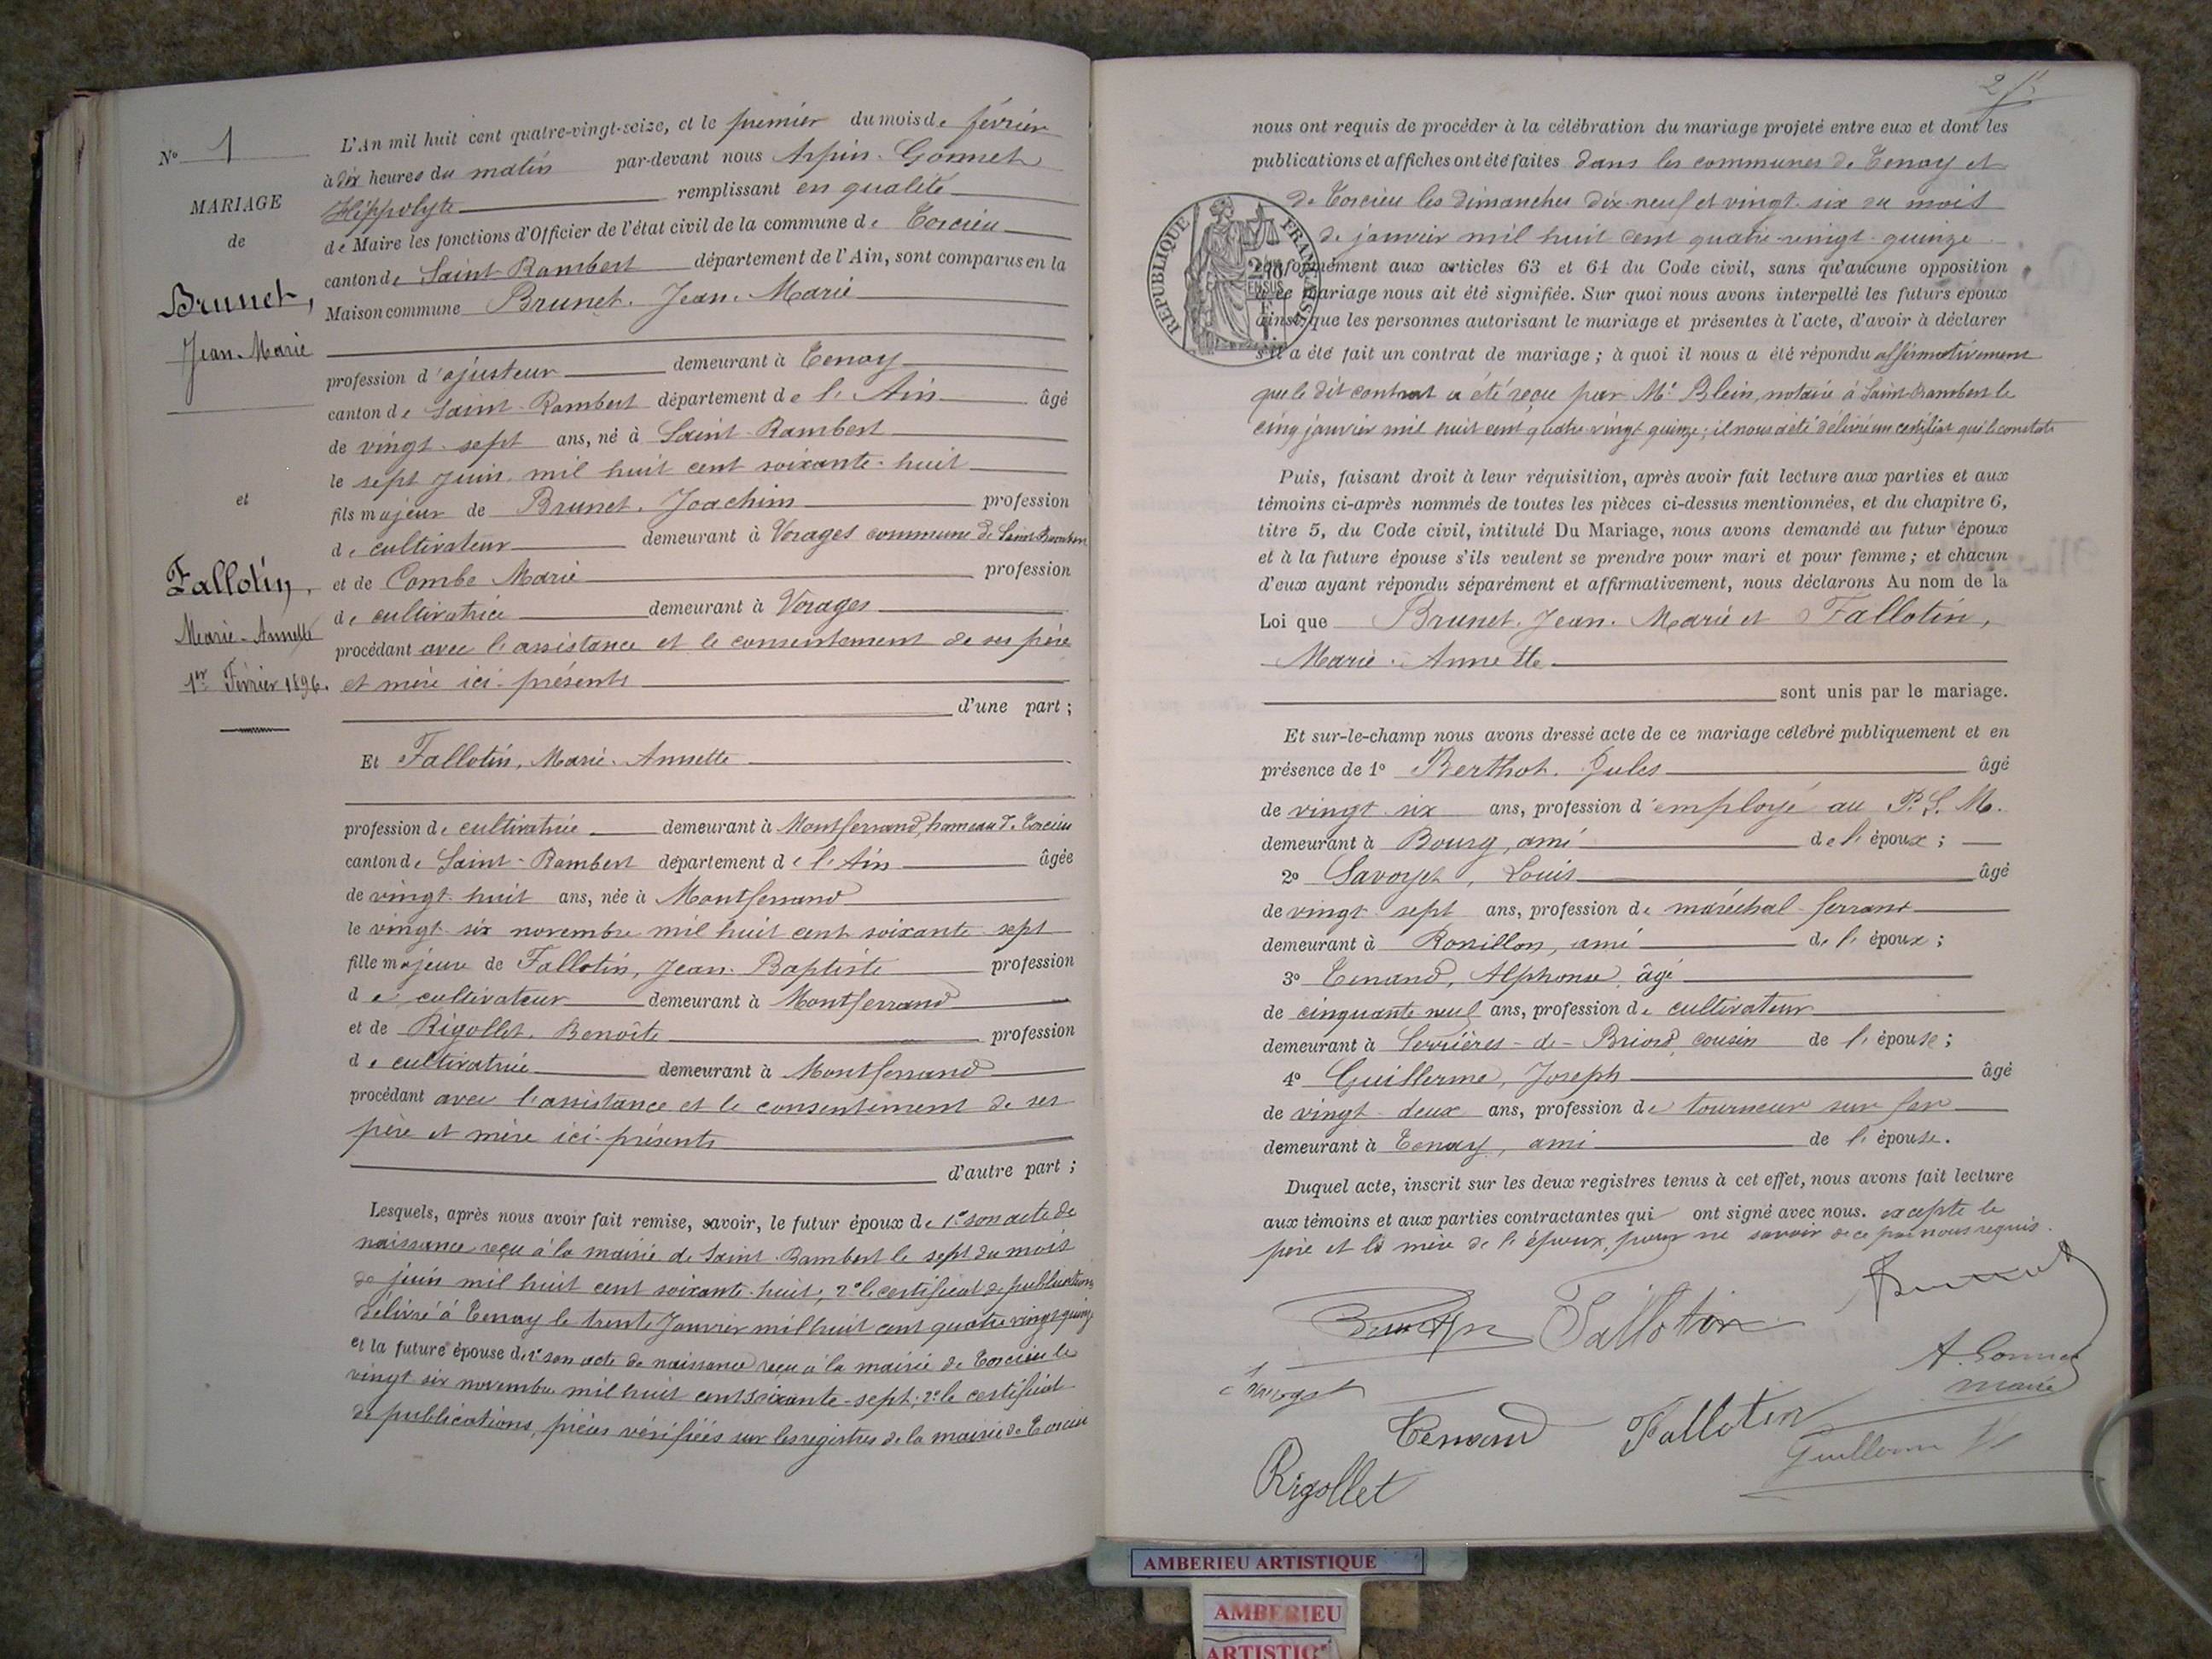 N° 1
MARIAGE
de
Brunet,
Jean-Marie
et
Fallotin,
Marie-Annette
1er Février 1896.
L'An mil huit cent quatre-vingt-seize, et le premier du mois de février
à dix heures du matin par-devant nous Arpin-Gonnet
Hippolyte remplissant en qualité
de Maire les fonctions d'Officier de l'état civil de la commune de Torcieu
canton de Saint-Rambert département de l'Ain, sont comparus en la
Maison commune Brunet, Jean-Marie
profession d'ajusteur demeurant à Tenay
canton de Saint-Rambert département de l'Ain âgé
de vingt-sept ans, né à Saint-Rambert
le sept juin mil huit cent soixante-huit
fils majeur de Brunet, Joachim profession
de cultivateur demeurant à Vorages commune de Saint-Rambert
et de Combe Marie profession
de cultivatrice demeurant à Vorages
procédant avec l'assistance et le consentement de ses père
et mère ici présents
d'une part ;
Et Fallotin, Marie-Annette
profession de cultivatrice demeurant à Montferrand, hameau de Torcieu
canton de Saint-Rambert département de l'Ain âgée
de vingt-huit ans, née à Montferrand
le vingt-six novembre mil huit cent soixante-sept
fille majeure de Fallotin, Jean-Baptiste profession
de cultivateur demeurant à Montferrand
et de Rigollet, Benoîte profession
de cultivatrice demeurant à Montferrand
procédant avec l'assistance et le consentement de ses
père et mère ici présents
d'autre part ;
Lesquels, après nous avoir fait remise, savoir, le futur époux de 1° son acte de
naissance reçu à la mairie de Saint-Rambert le sept du mois
de juin mil huit cent soixante-huit ; 2° le certificat de publications
délivré à Tenay le trente Janvier mil huit cent quatre vingt quinze
et la future épouse de 1° son acte de naissance reçu à la mairie de Torcieu le
vingt six novembre mil huit cent soixante-sept ; 2° le certificat
de publications, pièces vérifiées sur les registres de la mairie de Torcieu
2
nous ont requis de procéder à la célébration du mariage projeté entre eux et dont les
publications et affiches ont été faites dans les communes de Tenay et
de Torcieu les dimanches dix-neuf et vingt-six du mois
de janvier mil huit cent quatre-vingt-quinze
RÉPUBLIQUE FRANÇAISE
conformément aux articles 63 et 64 du Code civil, sans qu'aucune opposition
à ce mariage nous ait été signifiée. Sur quoi nous avons interpellé les futurs époux
ainsi que les personnes autorisant le mariage et présentes à l'acte, d'avoir à déclarer
s'il a été fait un contrat de mariage ; à quoi il nous a été répondu affirmativement
que le dit contrat a été reçu par Me Blein, notaire à Saint-Rambert le
cinq janvier mil huit cent quatre-vingt quinze ; il nous a été délivré un certificat qui le constate
Puis, faisant droit à leur réquisition, après avoir fait lecture aux parties et aux
témoins ci-après nommés de toutes les pièces ci-dessus mentionnées, et du chapitre 6,
titre 5, du Code civil, intitulé Du Mariage, nous avons demandé au futur époux
et à la future épouse s'ils veulent se prendre pour mari et pour femme ; et chacun
d'eux ayant répondu séparément et affirmativement, nous déclarons Au nom de la
Loi que Brunet, Jean-Marie et Fallotin,
Marie-Annette
sont unis par le mariage.
Et sur-le-champ nous avons dressé acte de ce mariage célébré publiquement et en
présence de 1° Berthot, Jules âgé
de vingt-six ans, profession d'employé au P. L. M.
demeurant à Bourg, ami de l'époux ;
2° Savoyet, Louis âgé
de vingt-sept ans, profession de maréchal-ferrant
demeurant à Rossillon, ami de l'époux ;
3° Tenand, Alphonse, âgé
de cinquante-neuf ans, profession de cultivateur
demeurant à Serrières-de-Briord, cousin de l'épouse ;
4° Guillerme, Joseph âgé
de vingt-deux ans, profession de tourneur sur fer
demeurant à Tenay, ami de l'épouse.
Duquel acte, inscrit sur les deux registres tenus à cet effet, nous avons fait lecture
aux témoins et aux parties contractantes qui ont signé avec nous. excepté le
père et la mère de l'époux, pour ne savoir de ce par nous requis.
Fallotin
Brunet
A. Gonnet
maire
Tenand
Fallotin
Rigollet
AMBERIEU ARTISTIQUE
AMBERIEU
ARTISTIQ